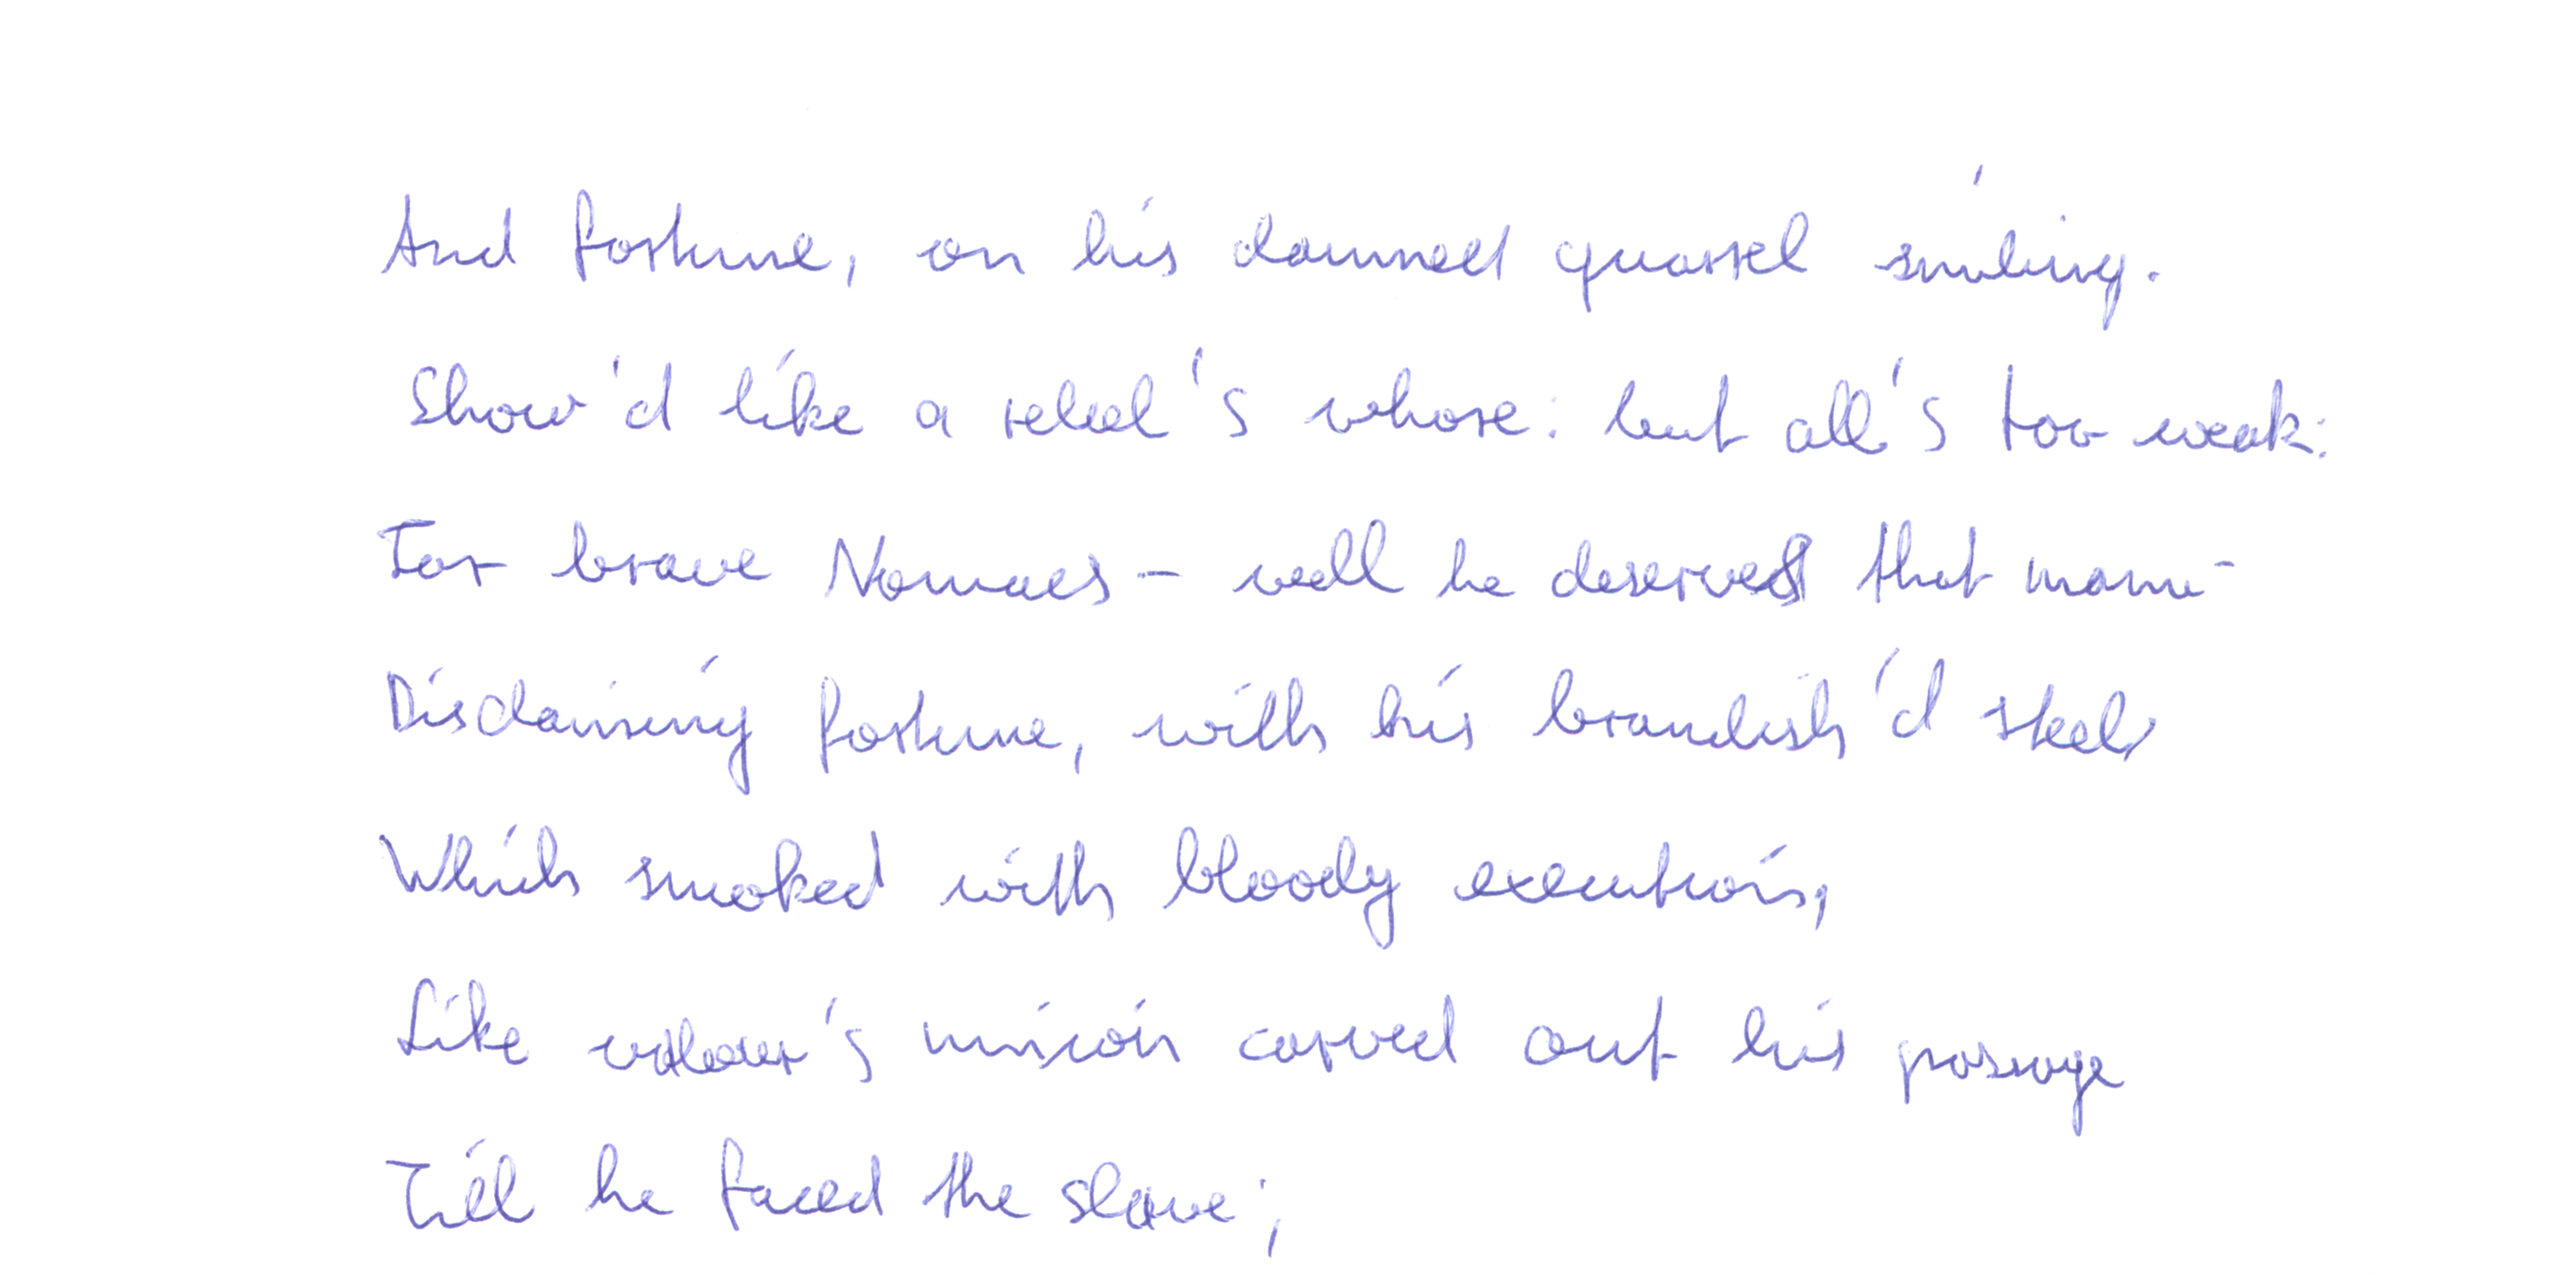 And fortune, on his damned quarrel smiling.
Show'd like a rebel's whore: but all's too weak:
For brave Nomaes - well he deserves that name -
Disdaining fortune, with his brandish'd steel
Which smoked with bloody execution,
Like valour's minion carved out his passage
Till he faced the slave;